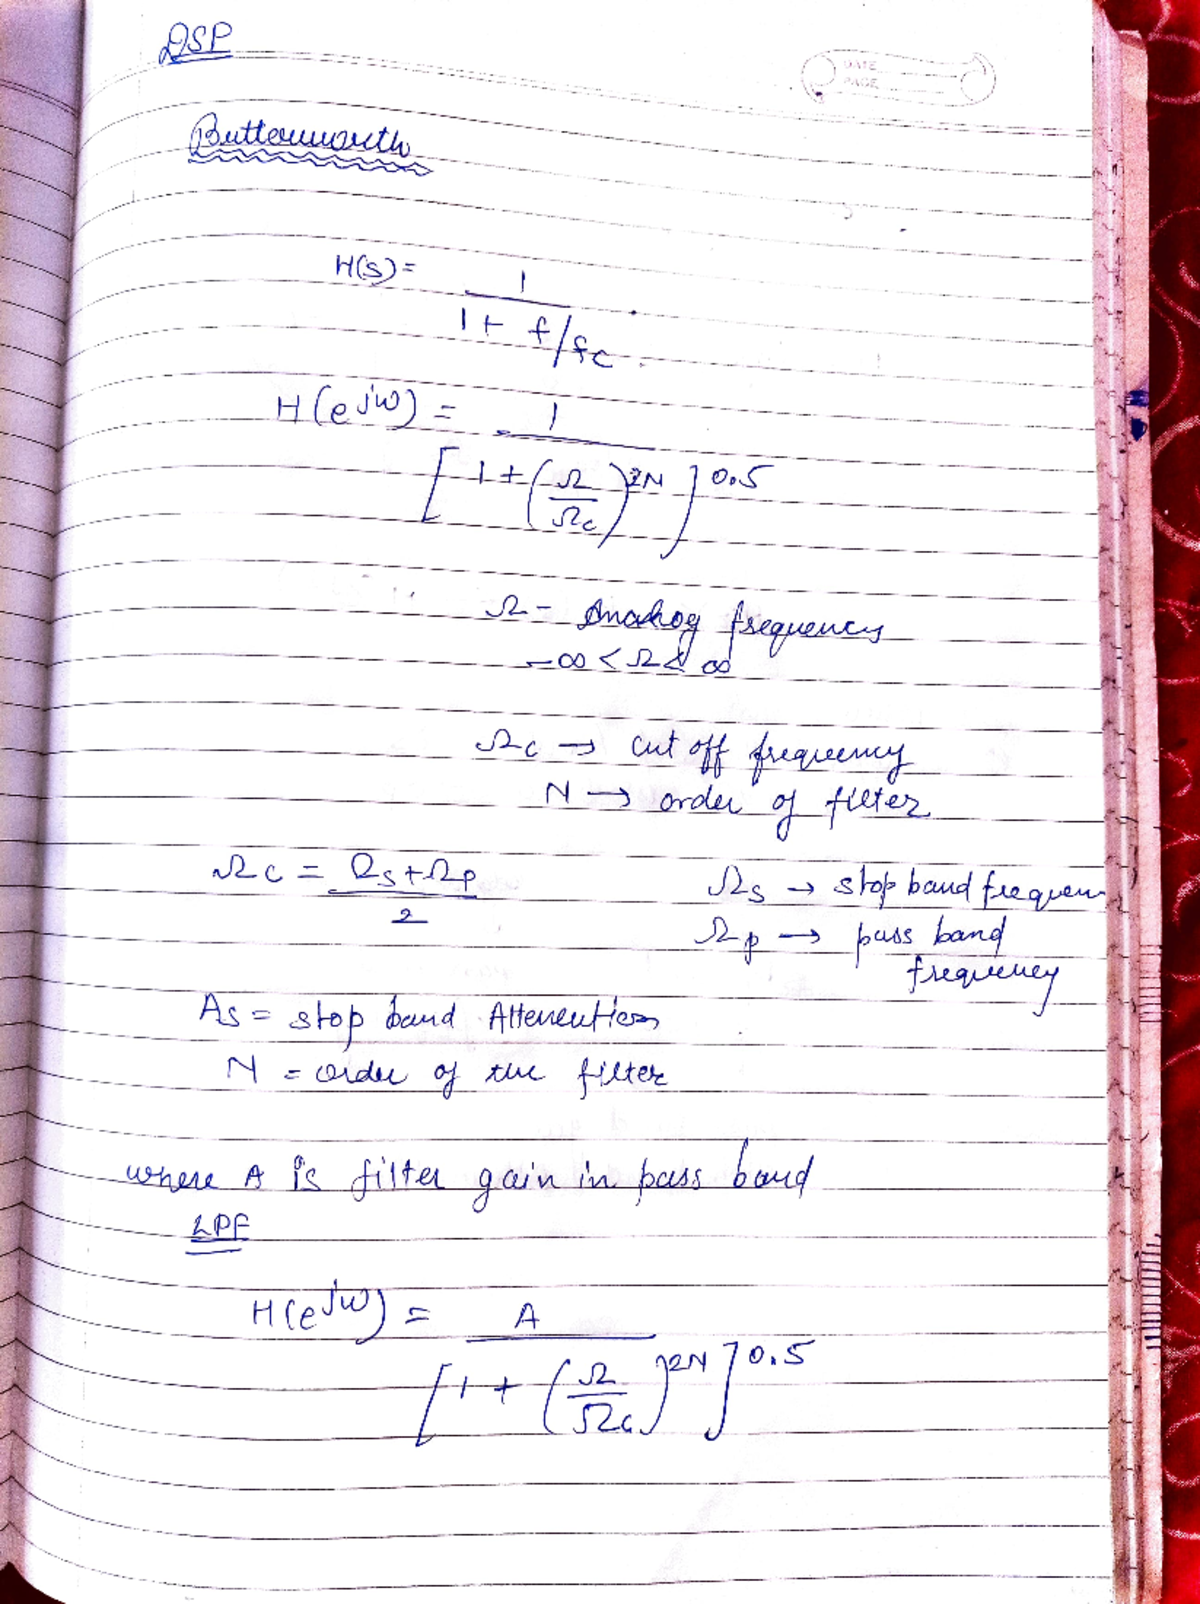 DSP
DATE
PAGE
Butterworth
H(s) = 1
1 + f/fc
H(e^jω) = 1
[1 + (Ω/Ωc)^2N]^0.5
Ω - Analog frequency
-∞ < Ω < ∞
Ωc → cut off frequency
N → order of filter
Ωc = Ωs + Ωp
2
Ωs → stop band frequen
Ωp → pass band
frequency
As = stop band Attenution
N = order of the filter
where A is filter gain in pass band
LPF
H(e^jω) = A
[1 + (Ω/Ωc)^2N]^0.5